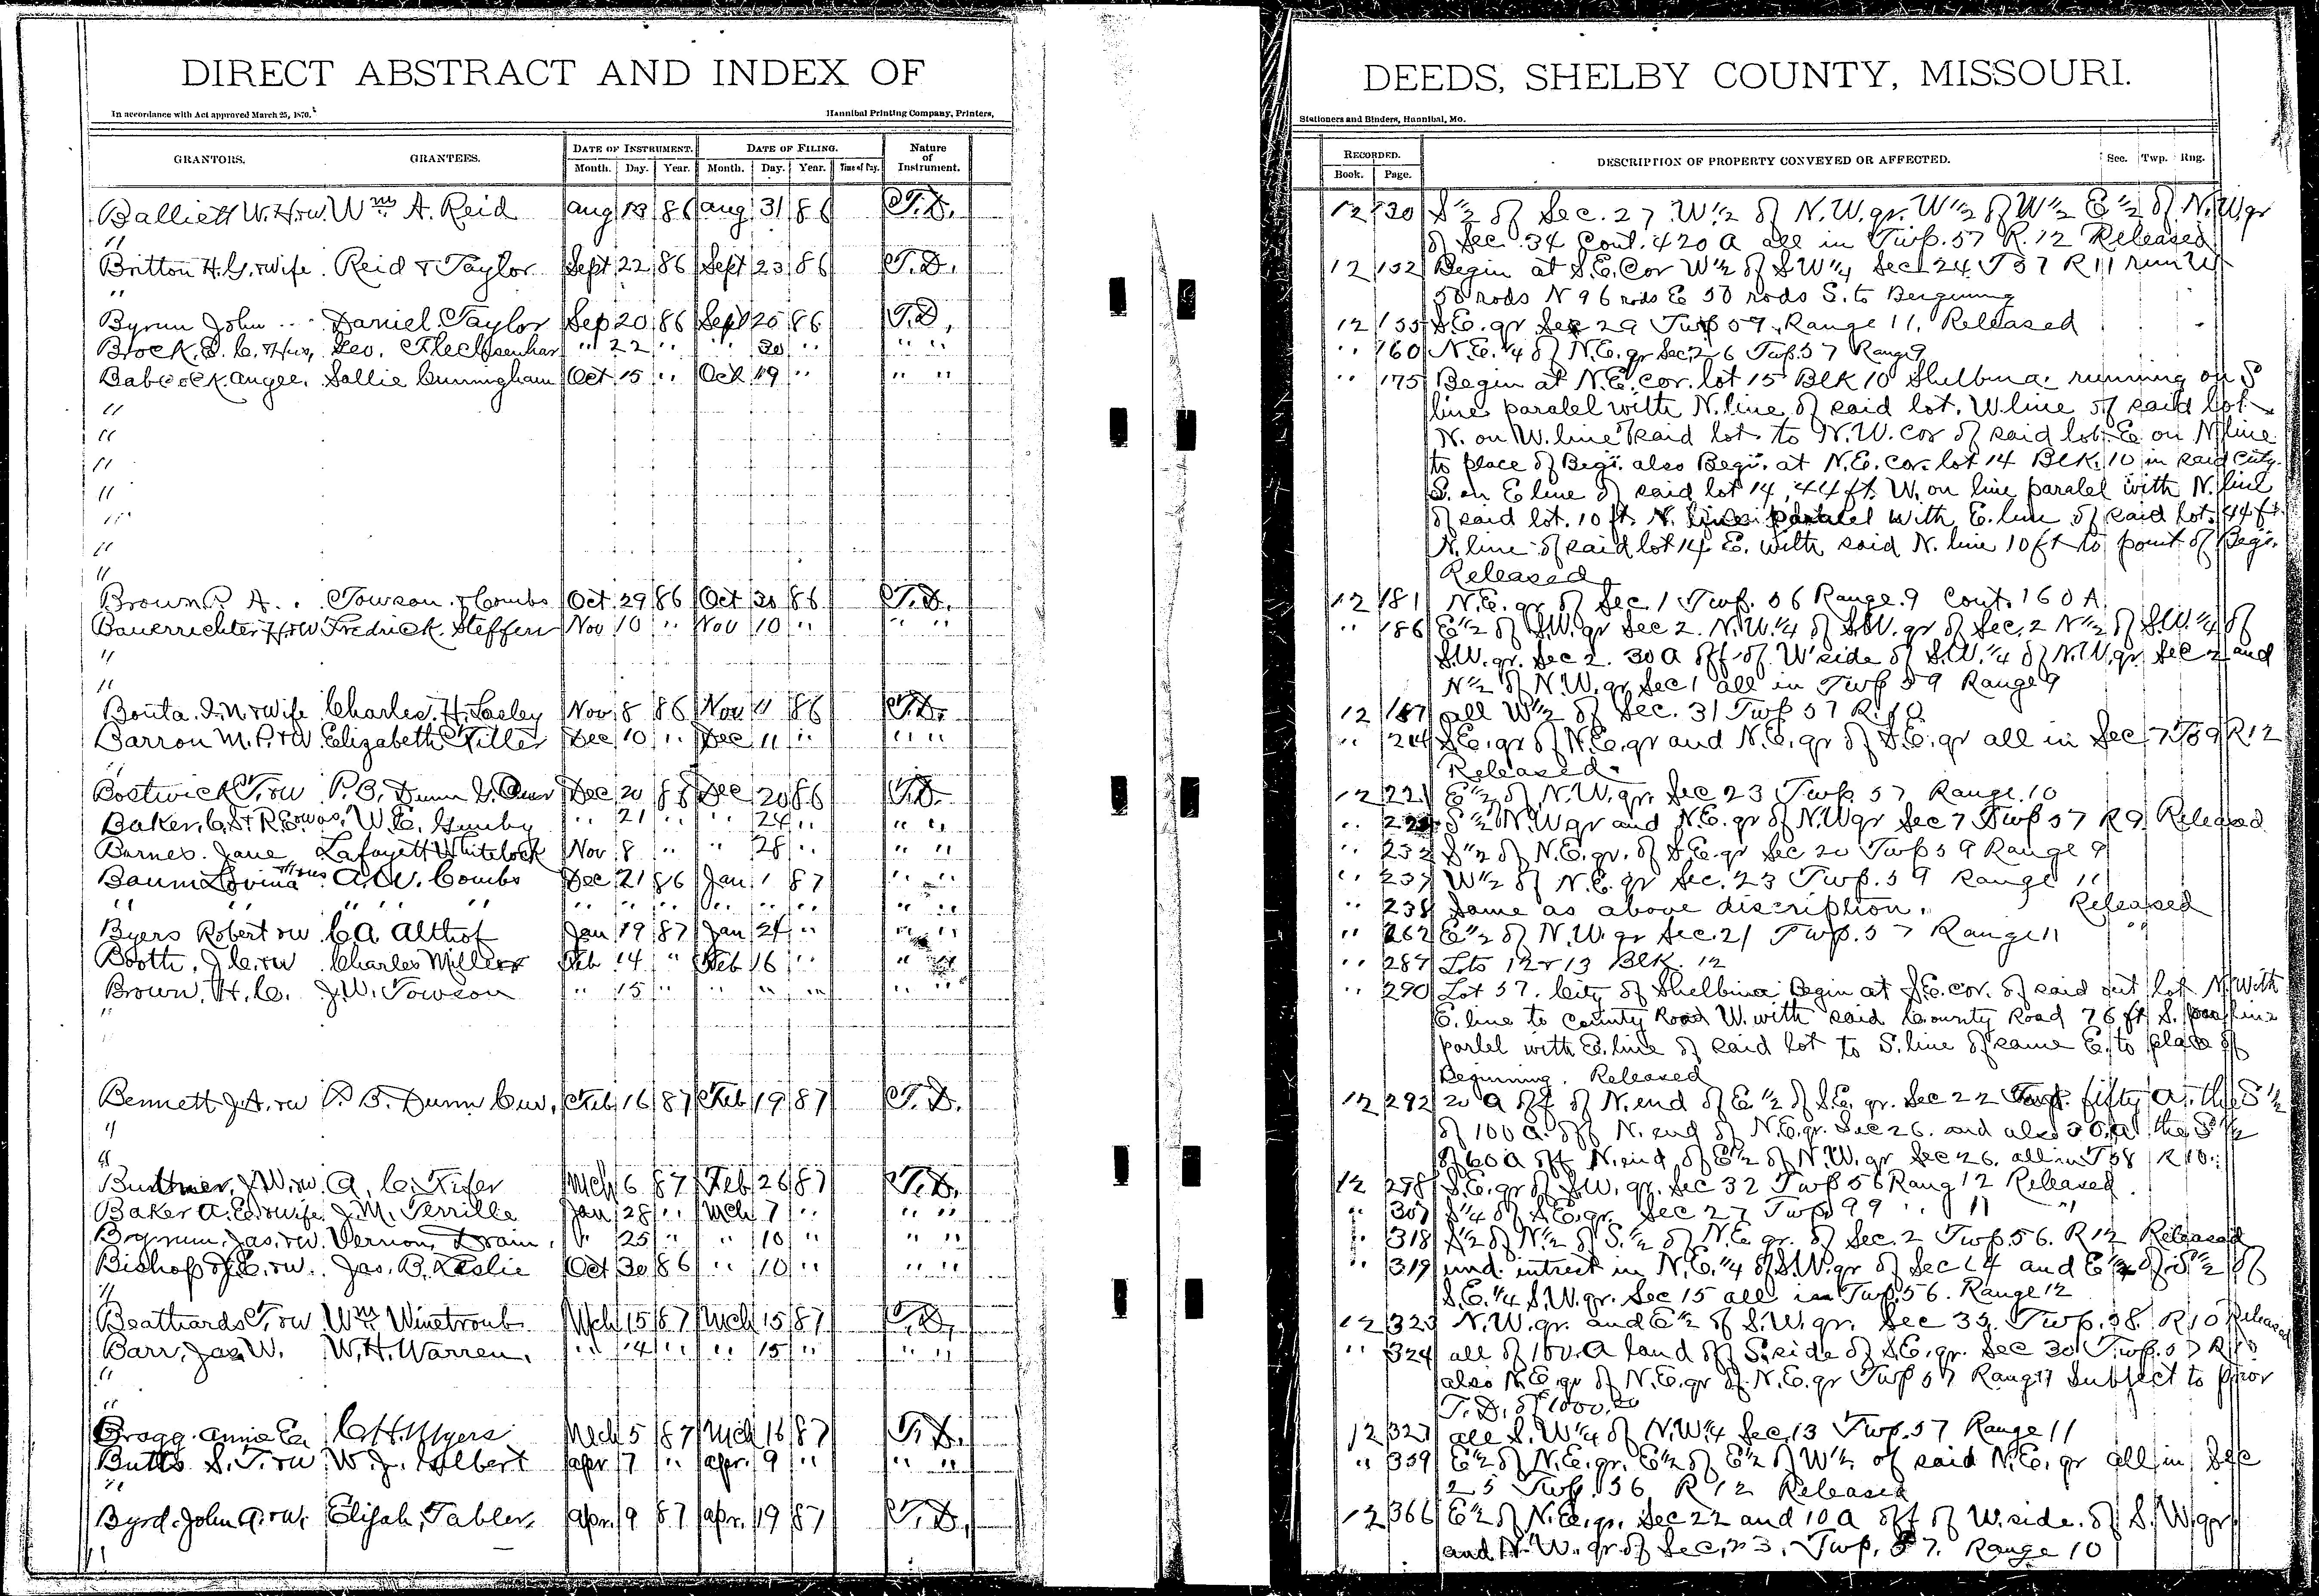 DIRECT ABSTRACT AND INDEX OF
In accordance with Act approved March 25, 1870.
Hannibal Printing Company, Printers,
GRANTORS. GRANTEES. DATE OF INSTRUMENT. DATE OF FILING. Nature of Instrument.
Month. Day. Year. Month. Day. Year. Time of Day.
Balliett W.H. r w. Wm A. Reid Aug 13 86 Aug 31 86 T.D.
"
Britton H.G. r wife. Reid & Taylor Sept 22 86 Sept 23 86 T.D.
"
Byrum John Daniel Taylor Sep 20 86 Sept 25 86 T.D.
Brock, E. C. Hus, Geo. " 22 " " 30 " " "
Babcock Angee. Sallie Cunningham Oct 15 " Oct 19 " " "
"
"
"
"
"
"
"
Brown P A. Towson & Combs Oct 29 86 Oct 30 86 T.D.
Bauerrichter H r w Fredrick Steffen Nov 10 " Nov 10 " " "
"
"
Bouta I.N. r wife Charles H. Lasley Nov 8 86 Nov 11 86 T.D.
Barron M.P. r w Elizabeth Dec 10 " Dec 11 " " "
"
Bostwick T. r w P.B. Dunn Dec 20 86 Dec 20 86 T.D.
Baker, C.S. r R.E. W.E. " 21 " " 24 " " "
Barnes Jane Lafayett Whitelock Nov 8 " " 28 " " "
Baum Lovina Hus A.W. Combs Dec 21 86 Jan 1 87 " "
" " " " " " " " " " " " "
Byers Robert r w C A Althof Jan 19 87 Jan 24 " " "
Booth, J.C. r w Charles Miller Feb 14 " Feb 16 " " "
Brown, H.C. J.W. Towson " 15 " " " " " "
"
Bennett J.A. r w P.B. Dunn Cur, Feb 16 87 Feb 19 87 T.D.
"
"
J.W. r w. A. C. Fifer Mch 6 87 Feb 26 87 T.D.
Baker A.E. r wife J.M. Terrille Jan 28 " Mch 7 " " "
Bynum, Jas. r w. Vernon Drain, " 25 " " 10 " " "
Bishop J.E. r w. Jas. B. Leslie Oct 30 86 " 10 " " "
"
Beathards T. r w Wm Winetroub Mch 15 87 Mch 15 87 T.D.
Barr, Jas W. W.H. Warren, " 14 " " 15 " " "
"
"
Bragg Annie E. C.H. Myers Mch 5 87 Mch 16 87 T.D.
Butts S.T. r w W.J. Albert Apr 7 " Apr. 9 " " "
"
Byrd John A. r w. Elijah Tabler, Apr. 9 87 Apr. 19 87 T.D.
"
DEEDS, SHELBY COUNTY, MISSOURI.
Stationers and Binders, Hannibal, Mo.
RECORDED. DESCRIPTION OF PROPERTY CONVEYED OR AFFECTED. Sec. Twp. Rng.
Book. Page.
12 130 S½ of Sec. 27 W½ of N.W. qr. W½ of W½ E½ of N.W qr
of Sec. 34 Cont. 420 A all in Twp. 57 R. 12 Released
12 152 Begin at S.E. Cor W½ of SW¼ Sec 24 T 57 R 11 run W
50 rods N 96 rods E 50 rods S. to Beguning
12 155 S.E. qr Sec 29 Twp 57 Range 11, Released
" 160 N.E. ¼ of N.E. qr Sec 26 Twp 57 Range 9
" 175 Begin at N.E. cor. lot 15 Blk 10 Shelbina running on S
line paralel with N. line of said lot. W. line of said lot
N. on W. line said lot to N.W. cor of said lot. E on N line
to place of Begi. also Begi. at N.E. cor. lot 14 Blk. 10 in said City.
S. on E line of said lot 14, 44 ft. W. on line paralel with N. line
of said lot. 10 ft. N. line paralel with E. line of said lot. 44 ft.
N. line of said lot 14 E. with said N. line 10 ft to point of Begi.
Released
12 181 N.E. qr of Sec 1 Twp. 56 Range. 9 Cont. 160 A
" 186 E½ of S.W. qr Sec 2. N.W. ¼ of S.W. qr of Sec. 2 N½ of S.W. ¼ of
S.W. qr. Sec 2. 30 A off of W side of S.W. ¼ of N.W. qr Sec 2 and
N½ of N.W. qr Sec 1 all in Twp 59 Range 9
12 187 all W½ of Sec. 31 Twp 57 R. 10
" 214 S.E. qr of N.E. qr and N.E. qr of S.E. qr all in Sec 7 T 59 R 12
Released
12 221 E½ of N.W. qr. Sec 23 Twp. 57 Range. 10
" S½ N.W qr and N.E. qr of N.W qr Sec 7 Twp 57 R 9. Released
" 232 S½ of N.E. qr. of S.E. qr Sec 20 Twp 59 Range 9
" 237 W½ of N.E. qr Sec. 23 Twp. 59 Range 11
" 238 Same as above discription. Released
" 262 E½ of N.W. qr Sec. 21 Twp. 57 Range 11 "
" 287 Lots 12 r 13 Blk. 12
" 290 Lot 57. City of Shelbina Begin at S.E. cor. of said out lot N. with
E. line to County Road W. with said County Road 76 ft S. line
parlel with E. line of said lot to S. line of same E. to place of
Beginning. Released
12 292 20 A off of N. end of E½ of S.E. qr. Sec 22 fifty A. the S½
of 100 A. off N. end of N.E. qr. Sec 26. and also 30 A the S½
of 60 A off N. end of E½ of N.W. qr Sec 26. all in T 58 R 10.
12 298 S.E. qr of S.W. qr. Sec 32 Twp 56 Rang 12 Released
" 307 S¼ of S.E. qr. Sec 27 Twp 99 " 11 "
" 318 S½ of N½ of S.½ of N.E qr. of Sec. 2 Twp. 56. R 12 Released
" 319 und. intrest in N.E. ¼ of S.W. qr of Sec 14 and E½ of S½ of
S.E. ¼ S.W. qr. Sec 15 all in Twp. 56. Range 12
12 323 N.W. qr. and E½ of S.W. qr. Sec 35. Twp. 58 R 10 Released
" 324 all of 100. A land off S. side of S.E. qr. Sec 30 Twp. 57 R 10
also N.E. qr of N.E. qr of N.E. qr Twp 57 Rang 11 Subject to prior
T.D. of 1000.00
12 327 all S.W¼ of N.W¼ Sec, 13 Twp. 57 Range 11
" 359 E½ of N.E. qr. E½ of E½ of W½ of said N.E. qr all in Sec
25 Twp. 56 R 12 Released
12 366 E½ of N.E. qr. Sec 22 and 10 A off of W. side. of S.W qr.
and N.W. qr. of Sec, 23, Twp, 57. Range 10